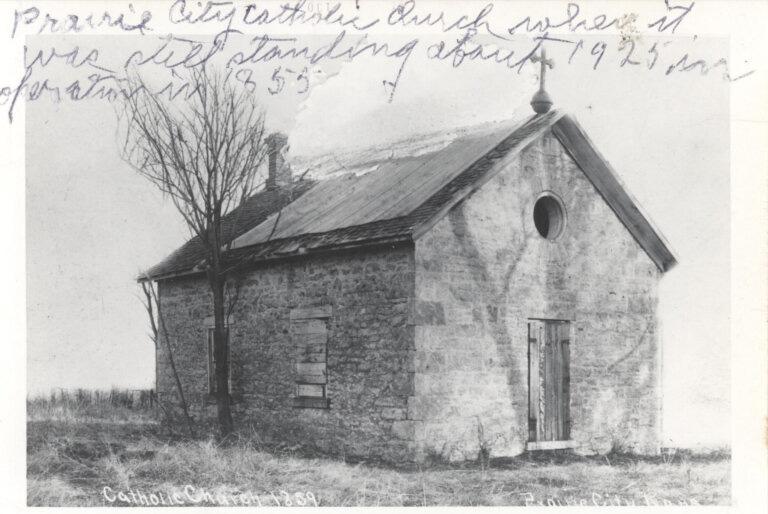 Prairie City Catholic Church when it
was still standing about 1925, in
operation in 1855
Catholic Church 1859
Prairie City Kans